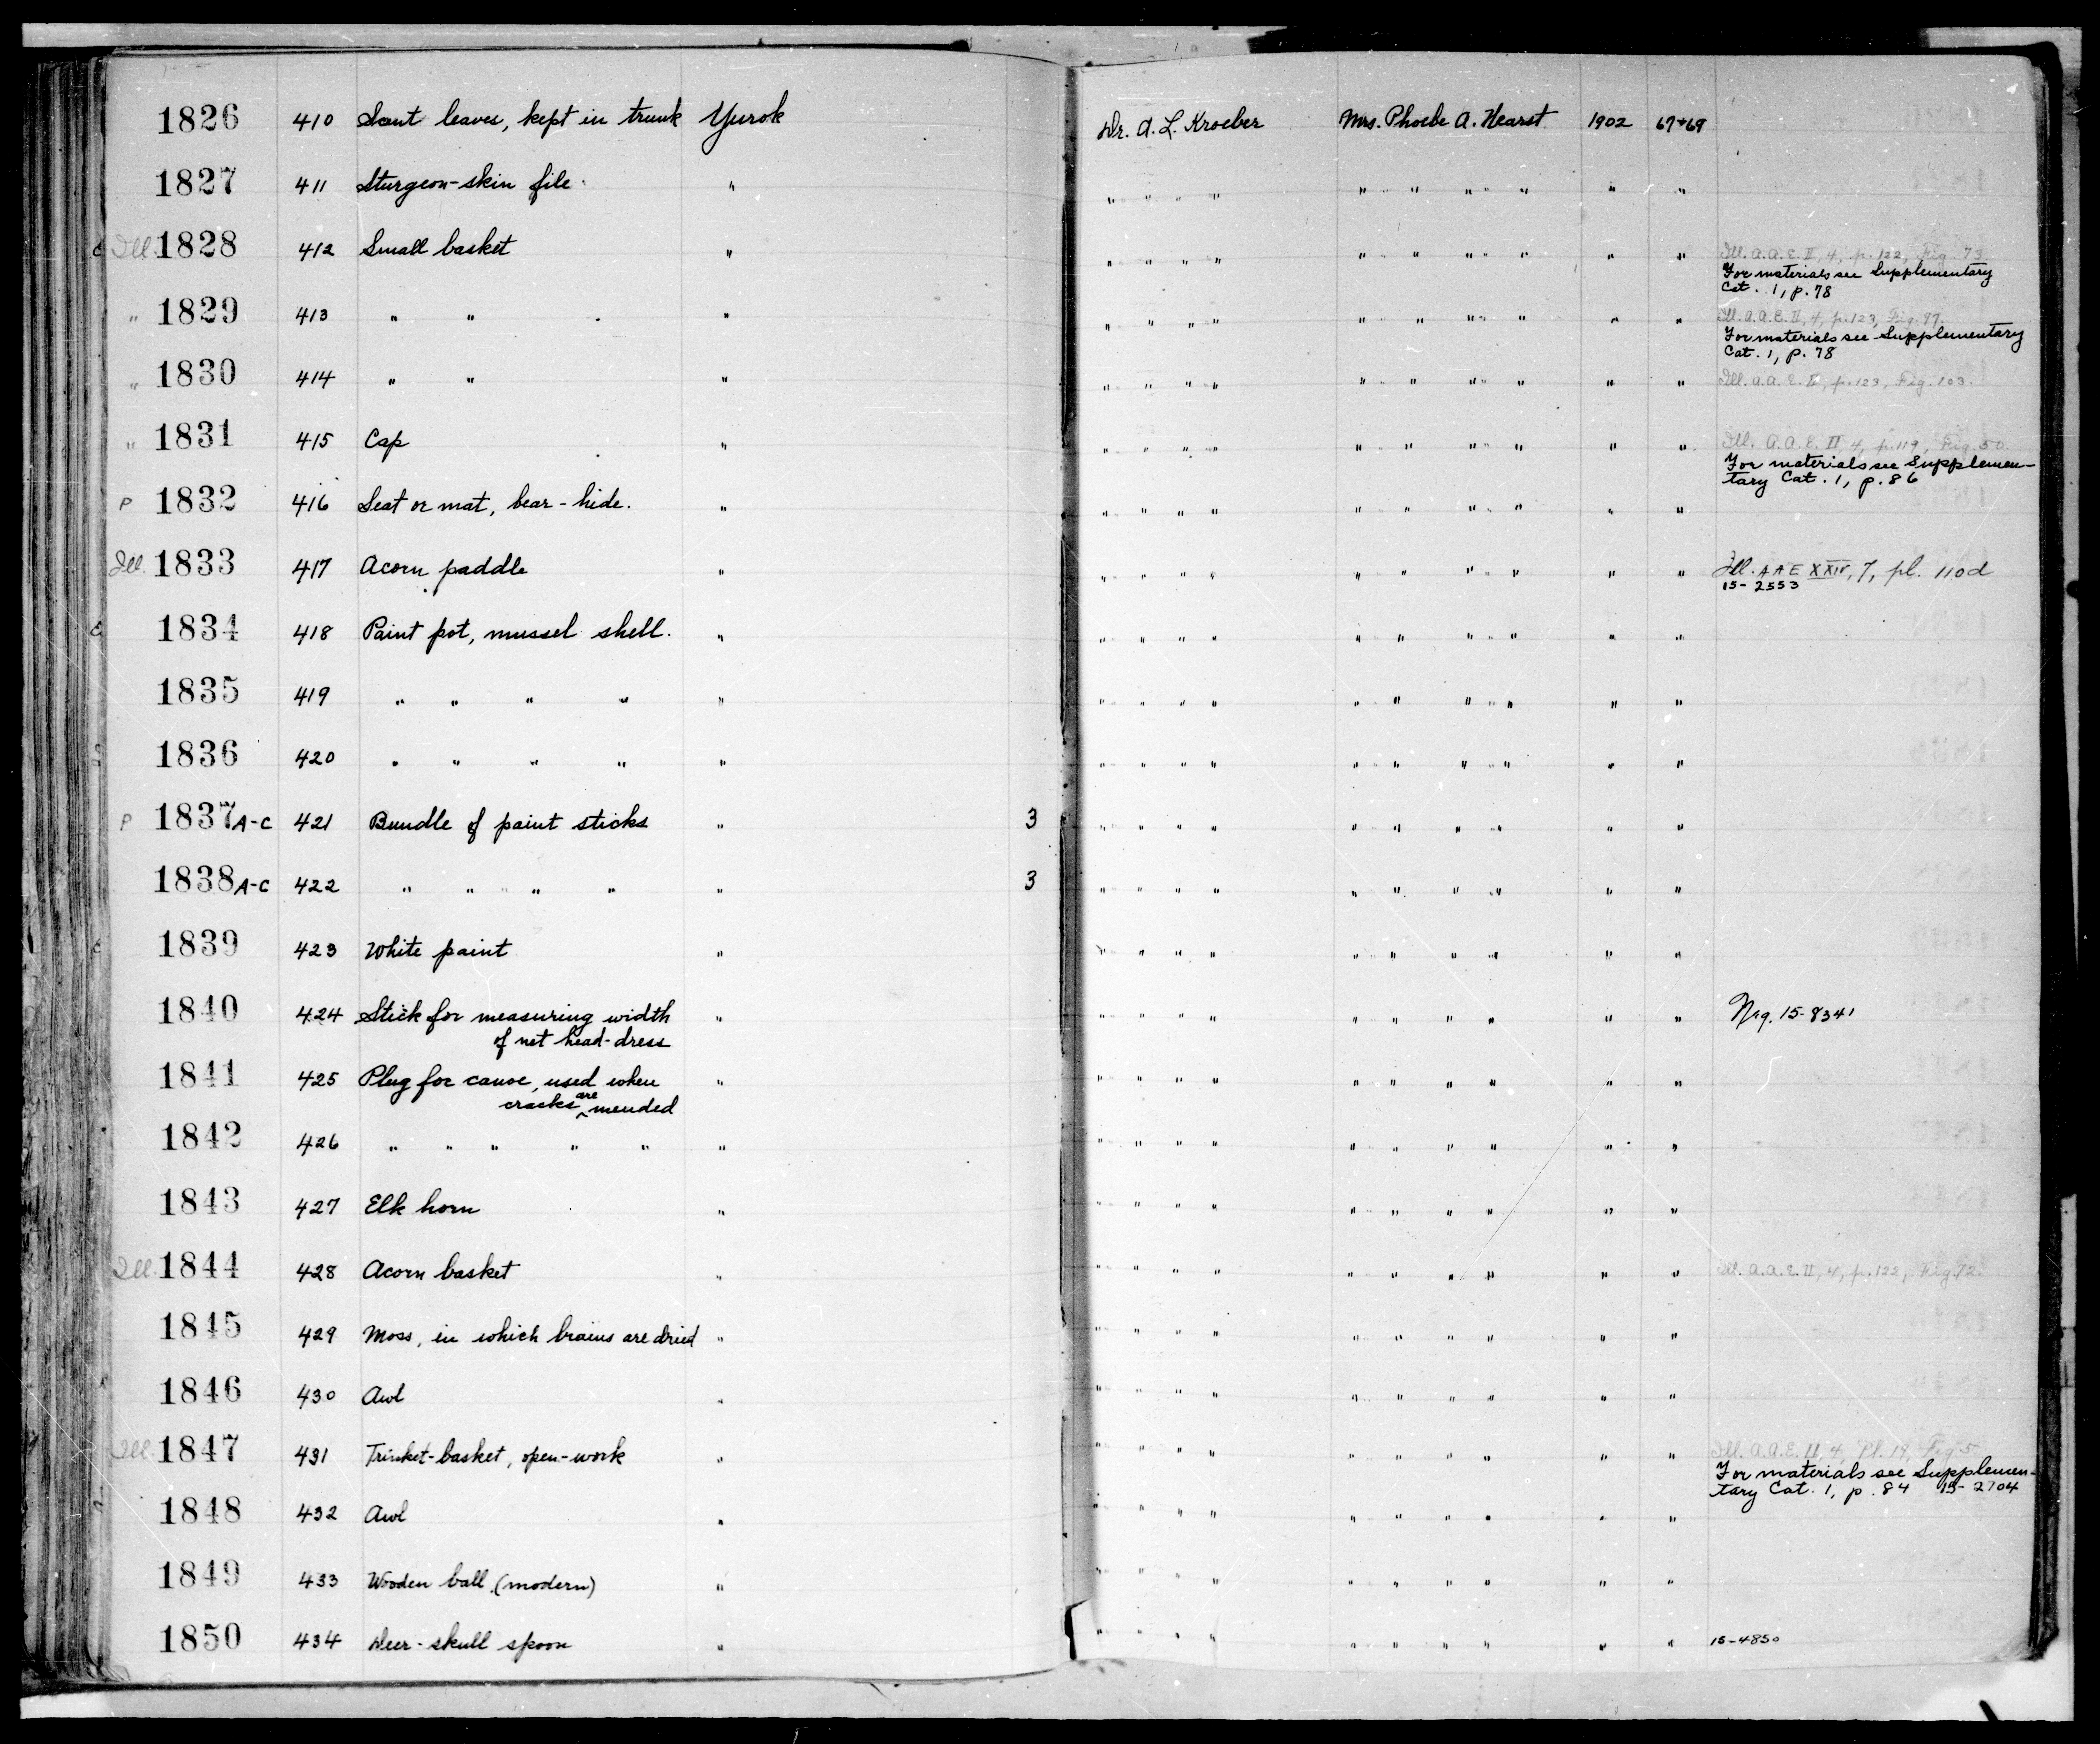 1826 410 Scent leaves, kept in trunk Yurok Dr. A. L. Kroeber Mrs. Phoebe A. Hearst 1902 67+69
1827 411 Sturgeon-skin file. " " " " " " " " " " "
Ill. 1828 412 Small basket " " " " " " " " " " " Ill. A.A.E. II, 4, p. 122, Fig. 73
For materials see Supplementary
Cat. 1, p. 78
" 1829 413 " " " " " " " " " " " " " Ill. A.A.E. II, 4, p. 123, Fig. 97.
For materials see Supplementary
Cat. 1, p. 78
" 1830 414 " " " " " " " " " " " " " Ill. A.A.E. II, p. 123, Fig. 103.
" 1831 415 Cap " " " " " " " " " " " Ill. A.A.E. II 4, p. 119, Fig. 50
For materials see Supplemen-
tary Cat. 1, p. 86
P 1832 416 Seat or mat, bear-hide. " " " " " " " " " " "
Ill. 1833 417 Acorn paddle " " " " " " " " " " " Ill. AAE XXIV, 7, pl. 110d
15-2553
1834 418 Paint pot, mussel shell. " " " " " " " " " " "
1835 419 " " " " " " " " " " " " " " "
1836 420 " " " " " " " " " " " " " " "
P 1837A-C 421 Bundle of paint sticks " 3 " " " " " " " " " "
1838A-C 422 " " " " " 3 " " " " " " " " " "
1839 423 White paint " " " " " " " " " " "
1840 424 Stick for measuring width " " " " " " " " " " " Neg. 15-8341
of net head-dress
1841 425 Plug for canoe, used when " " " " " " " " " " "
cracks are mended
1842 426 " " " " " " " " " " " " " " " "
1843 427 Elk horn " " " " " " " " " " "
Ill. 1844 428 Acorn basket " " " " " " " " " " " Ill. A.A.E. II, 4, p. 122, Fig. 72.
1845 429 Moss, in which brains are dried " " " " " " " " " " "
1846 430 Awl " " " " " " " " " " "
Ill. 1847 431 Trinket-basket, open-work " " " " " " " " " " " Ill. A.A.E. II, 4, Pl. 19, Fig. 5
For materials see Supplemen-
tary Cat. 1, p. 84 15-2704
1848 432 Awl " " " " " " " " " " "
1849 433 Wooden ball (modern) " " " " " " " " " " "
1850 434 Deer-skull spoon " " " " " " " " " " " 15-4850